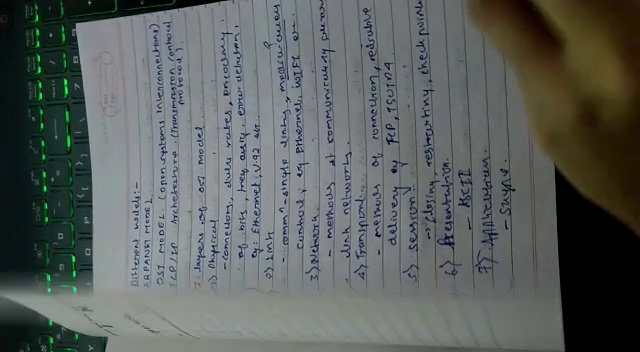 Different models:-
ARPANET MODEL.
OSI MODEL (open systems Interconnections)
TCP/IP Architecture. (Transmission control
protocol).
7 layers of OSI model
1) Physical
- connectors, data rates, encoding
of bits, freq, error detection.
eg: Ethernet, V.92 etc
2) Link
- commn - single link,
control, eg Ethernet, WIFI
3) Network
- methods of communicating
link networks.
4) Transport
- methods of connection, reliable
delivery eg TCP, ISO TP4
5) Session
- closing, restarting, checkpoint
6) Presentation.
- ASCII
7) Application.